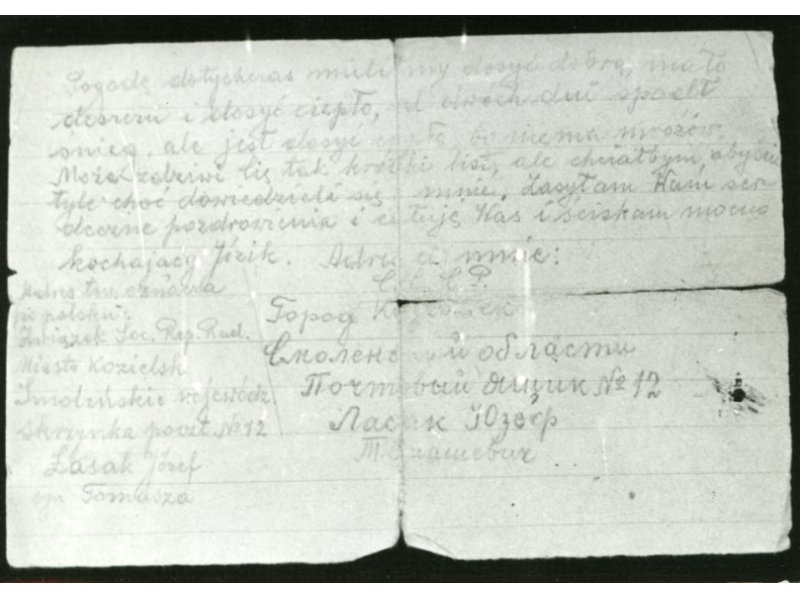 Pogodę dotychczas mieliśmy dosyć dobrą, mało
deszczu i dosyć ciepło, od dwóch dni spadł
śnieg, ale jest dosyć ciepło bo niema mrozów.
Może zdziwi Cię tak krótki list, ale chciałbym, abyście
tyle choć dowiedzieli się o mnie. Zasyłam Wam ser-
deczne pozdrowienia i całuję Was i ściskam mocno
kochający Józik. Adres do mnie:
С.С.С.Р.
Город Козельск
Смоленской области
Почтовый Ящик № 12
Ласак Юзеф
Томашевич
Adres ten oznacza
po polsku:
Związek Soc. Rep. Rad.
Miasto Kozielsk
Smoleńskie wojewódz.
Skrzynka poczt. № 12
Lasak Józef
syn Tomasza